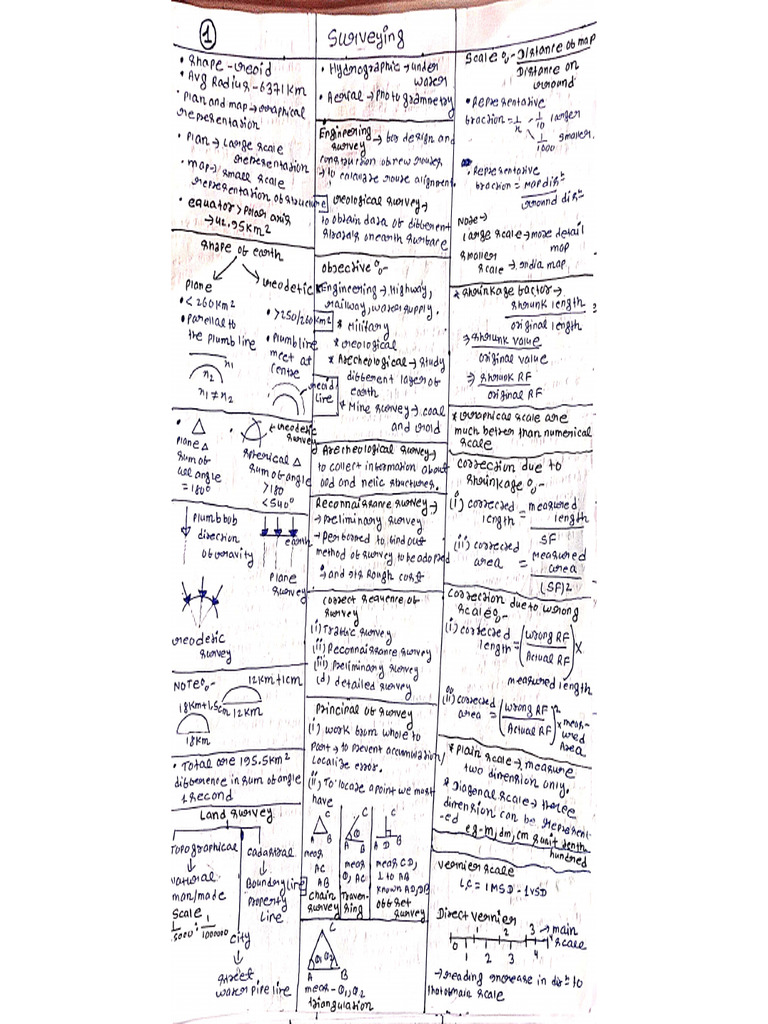 1
Surveying
• Shape - Geoid
• Avg Radius - 6371 Km
• Plan and map → Graphical
representation
• Plan → Large scale
representation
• map → small scale
representation of structure
• equator > Polar axis
→ 42.95 Km²
Shape of earth
Plane
• < 260 Km²
• Parellal to
the plumb line
n1
n2
n1 ≠ n2
Geodetic
• > 250/260 Km²
• Plumb line
meet at
centre
Geoid
line
• △
Plane △
Sum of
all angle
= 180°
• Geodetic
survey
Spherical △
Sum of angle
> 180
< 540°
Plumb bob
direction
of gravity
earth
Plane
survey
Geodetic
survey
NOTE:-
12 Km + 1 cm
12 Km
18 Km + 1.5 cm
18 Km
• Total are 195.5 Km²
difference in sum of angle
1 second
Land survey
Topographical
↓
Natural
man/made
Scale
1/5000 : 1/1000000
Cadastral
↓
Boundry line
Property
Line
City
↓
Street
water pipe line
• Hydrographic → under
water
• Aerial → Photogrammetry
Engineering
survey → for design and
construction of new routes
→ to calculate route alignment.
Geological survey →
to obtain data of different
stratas on earth surface
Objective :-
* Engineering → Highway,
railway, water supply.
* Military
* Geological
* Archeological → study
different layer of
earth
* Mine survey → coal
and Gold
Archeological survey →
to collect information about
old and relic structures.
Reconnaissance survey →
→ Preliminary survey
→ Performed to find out
method of survey to be adopted
→ and its Rough cost
Correct sequence of
survey
(i) Traffic survey
(ii) Reconnaissance survey
(iii) Preliminary survey
(d) detailed survey
Principal of survey
(i) work from whole to
part → to prevent accumulation/
localize error.
(ii) To locate a point we must
have
C
A B
meas
AC
AB
Chain
survey
C
θ
A B
meas
θ, AC
Traver-
sing
C
A D B
meas CD,
⊥ to AB
known AD, DB
offset
survey
C
θ1 θ2
A B
meas - θ1, θ2
triangulation
Scale :- Distance of map
Distance on
Ground
• Representative
fraction = 1/n - 1/10 larger
1/1000 smaller.
• Representative
fraction = map disⁿ
Ground disⁿ
Note →
Large scale → more detail
map
smaller
scale → India map
* Shrinkage factor →
Shrunk length
original length
=
⇒ Shrunk value
original value
⇒ Shrunk RF
original RF
* Graphical scale are
much better than numerical
scale
Correction due to
Shrinkage :-
(i) corrected
length = measured
length
SF
(ii) corrected
area = measured
area
(SF)2
Correction due to wrong
scale :-
(i) corrected
length = (Wrong RF / Actual RF) ×
measured length
(ii) corrected
area = (Wrong RF / Actual RF)² × meas-
ured
Area
* Plain scale → measure
two dimension only.
* Diagonal scale → three
dimension can be represent
-ed
eg - m, dm, cm & unit tenth
hundred
Vernier scale
L.C = 1 MSD - 1 VSD
Direct vernier
1 2 3 → main
scale
0 1 2 3 4
→ reading increase in disⁿ to